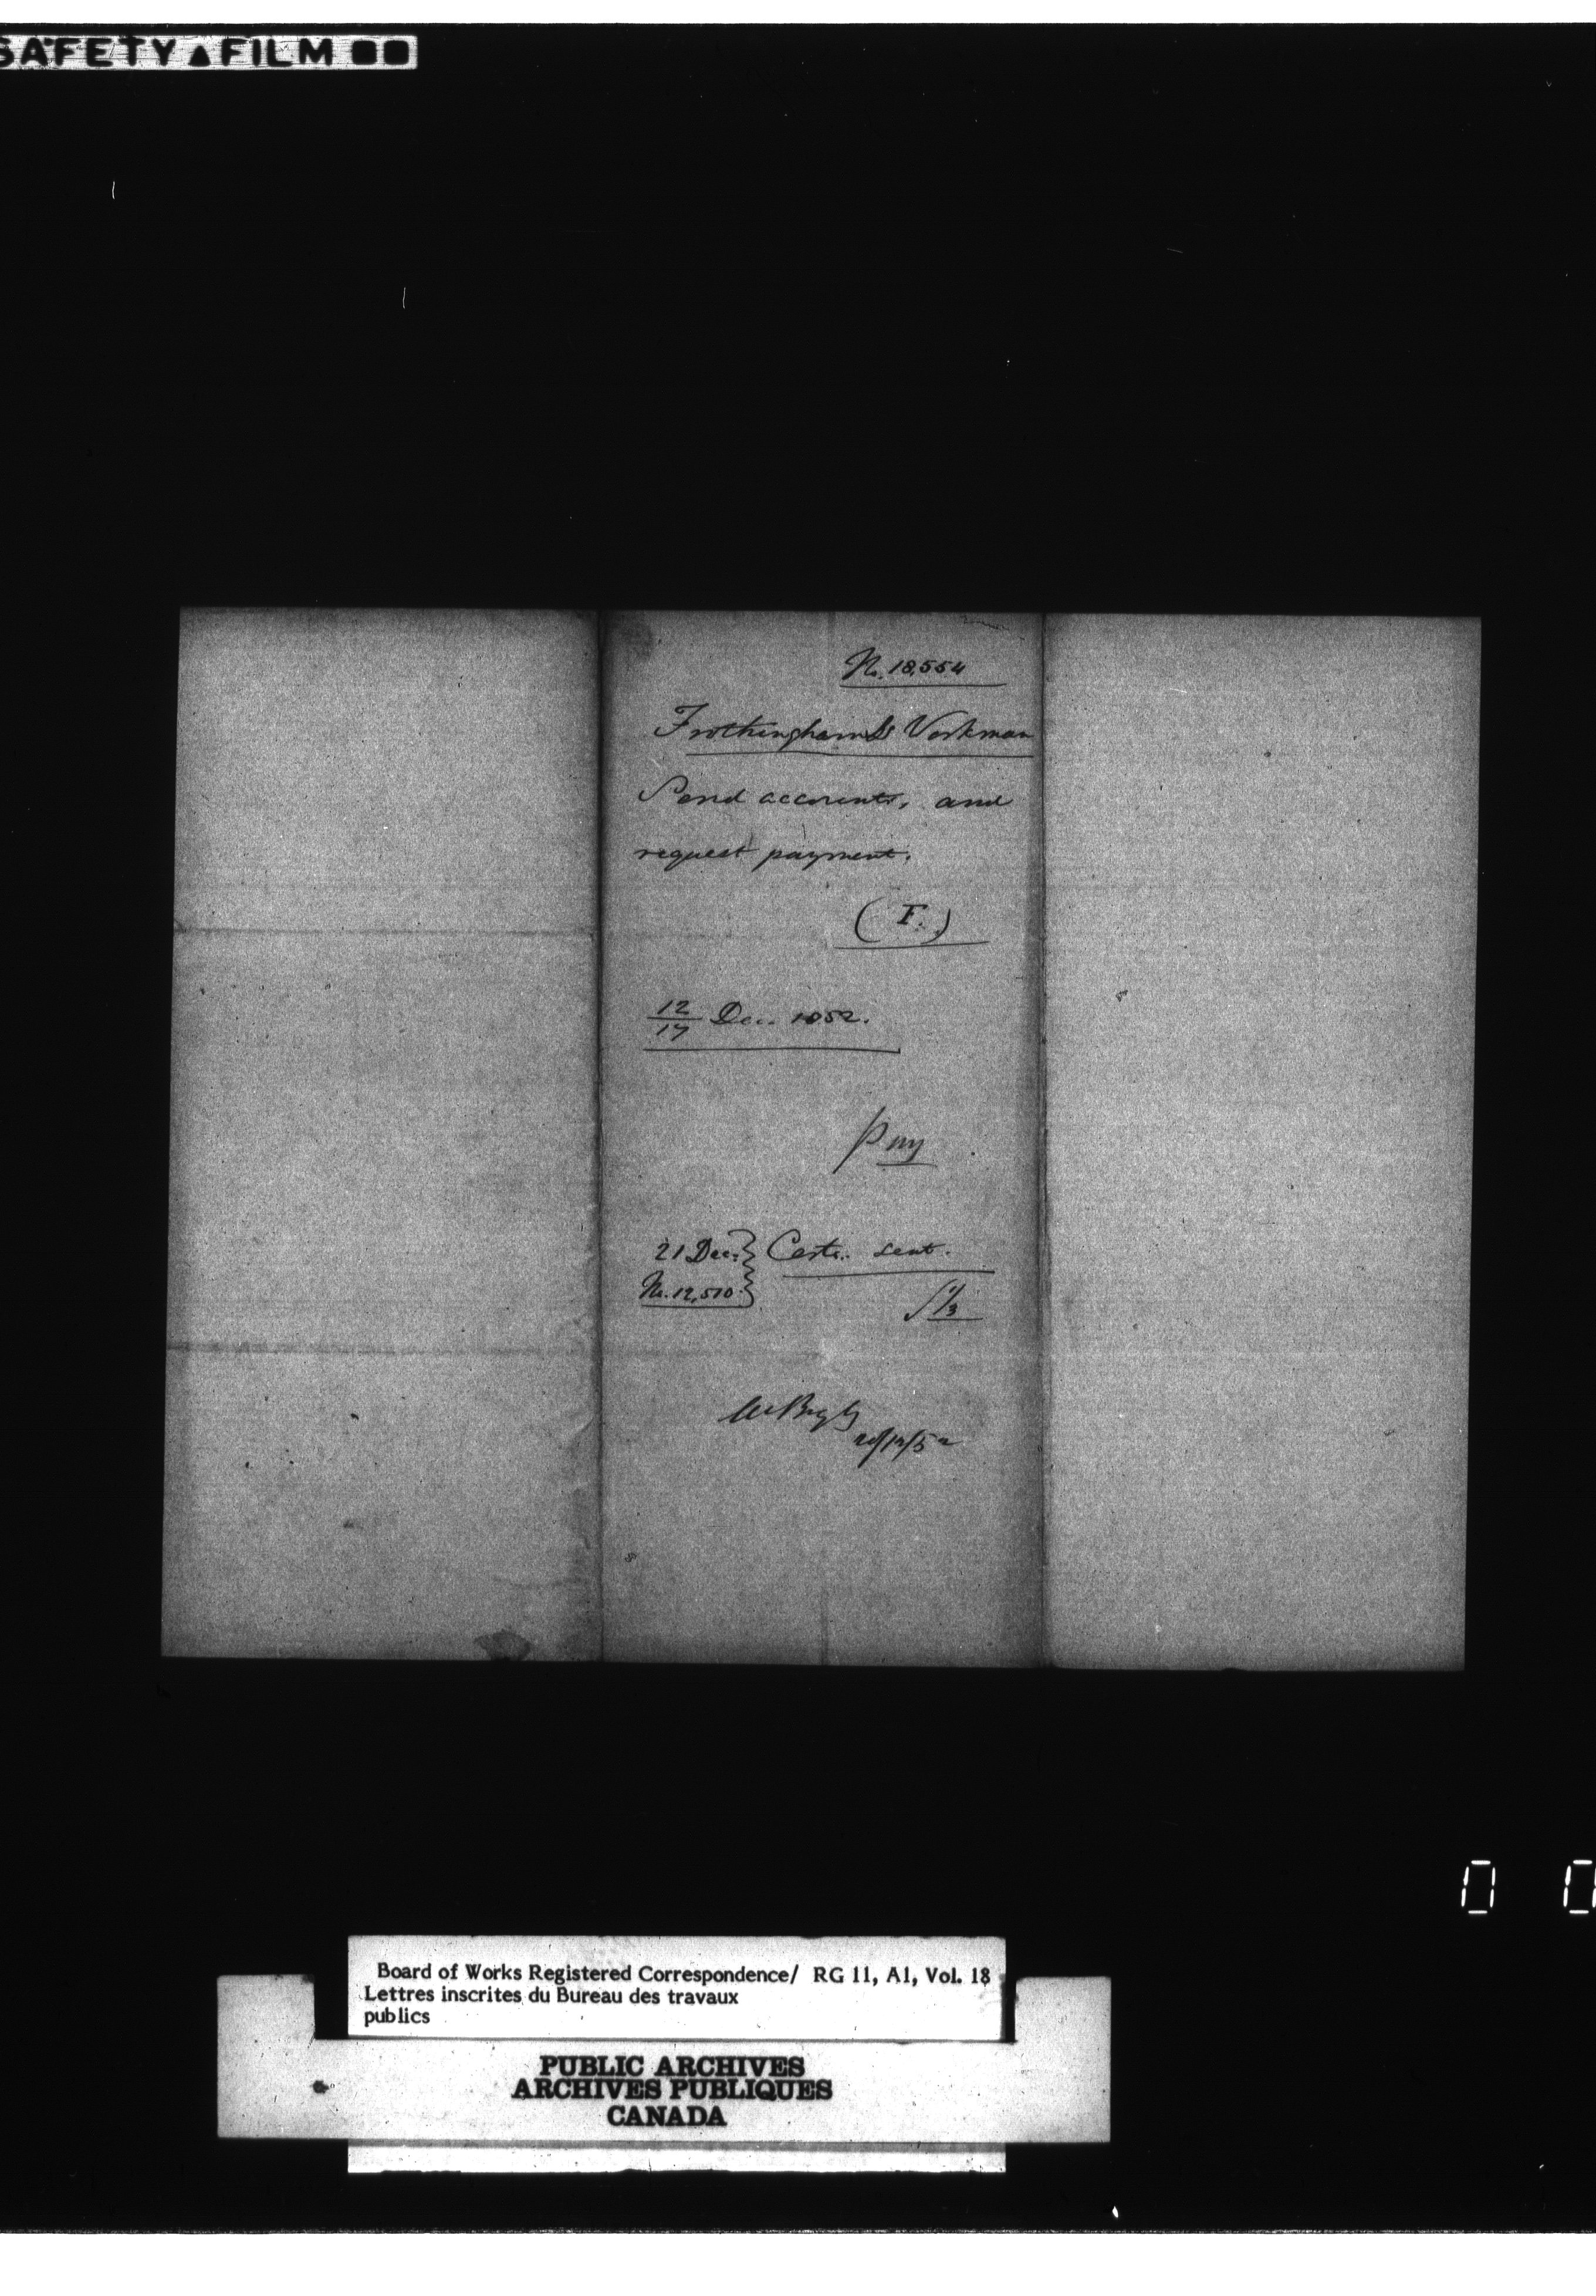 SAFETY FILM
No. 18,554
Frothingham & Workman
Send accounts, and
request payment.
(F.)
12/17 Dec. 1852.
Pay
21 Dec. } Certe. sent.
No. 12,510 }
20/12/52
0 0
Board of Works Registered Correspondence/ RG 11, A1, Vol. 18
Lettres inscrites du Bureau des travaux
publics
PUBLIC ARCHIVES
ARCHIVES PUBLIQUES
CANADA